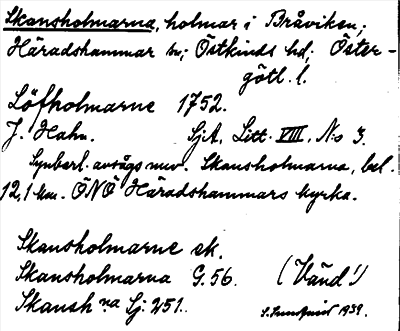 Skansholmarna, holmar i Bråviken,
Häradshammar sn; Östkinds hd; Öster-
götl. l.
Löfholmarne 1752.
J. Hahn. SjA, Litt. VIII, N:o 3.
Synbarl. avsågs nuv. Skansholmarna, bel.
12,1 km. ÖNÖ Häradshammars kyrka.
Skansholmarne ek.
Skansholmarna G. 56. (Vänd!)
Skansh na Sj. 251. 1939.